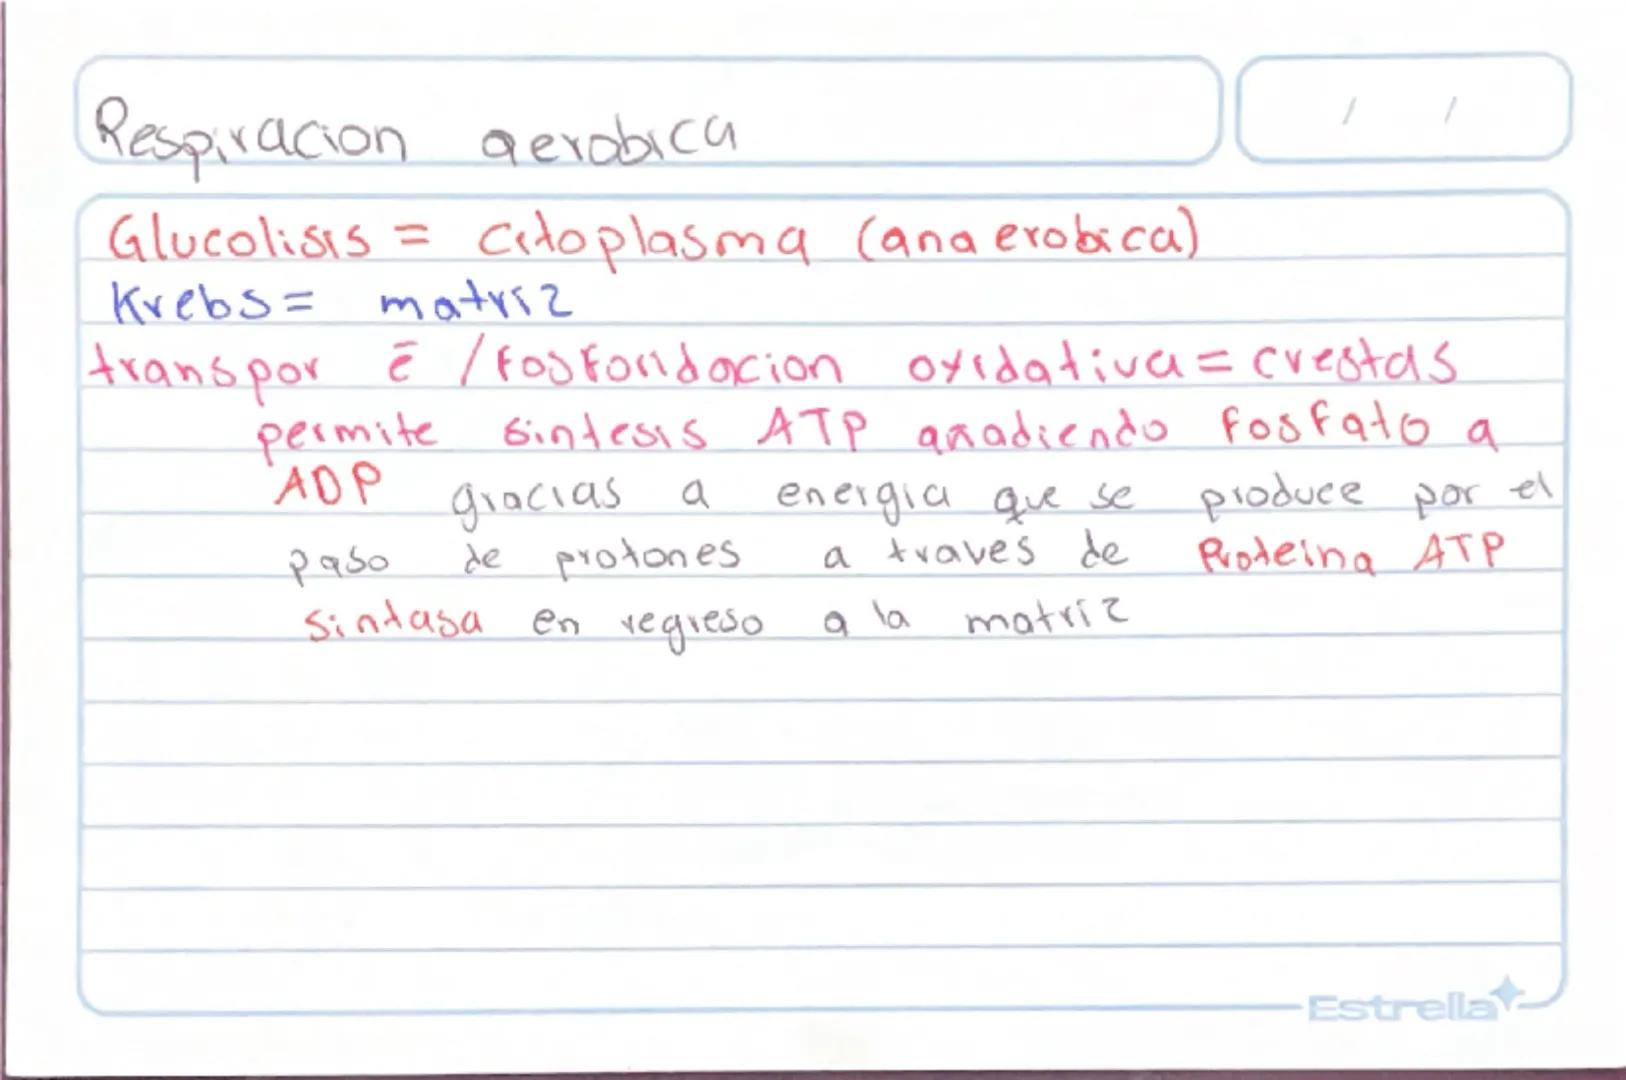 Respiracion aerobica
/ /
Glucolisis = citoplasma (anaerobica)
Krebs = matriz
transpor ē / fosforidacion oxidativa = crestas
permite sintesis ATP añadiendo fosfato a
ADP gracias a energia que se produce por el
paso de protones a traves de Proteina ATP
sintasa en regreso a la matriz
Estrella